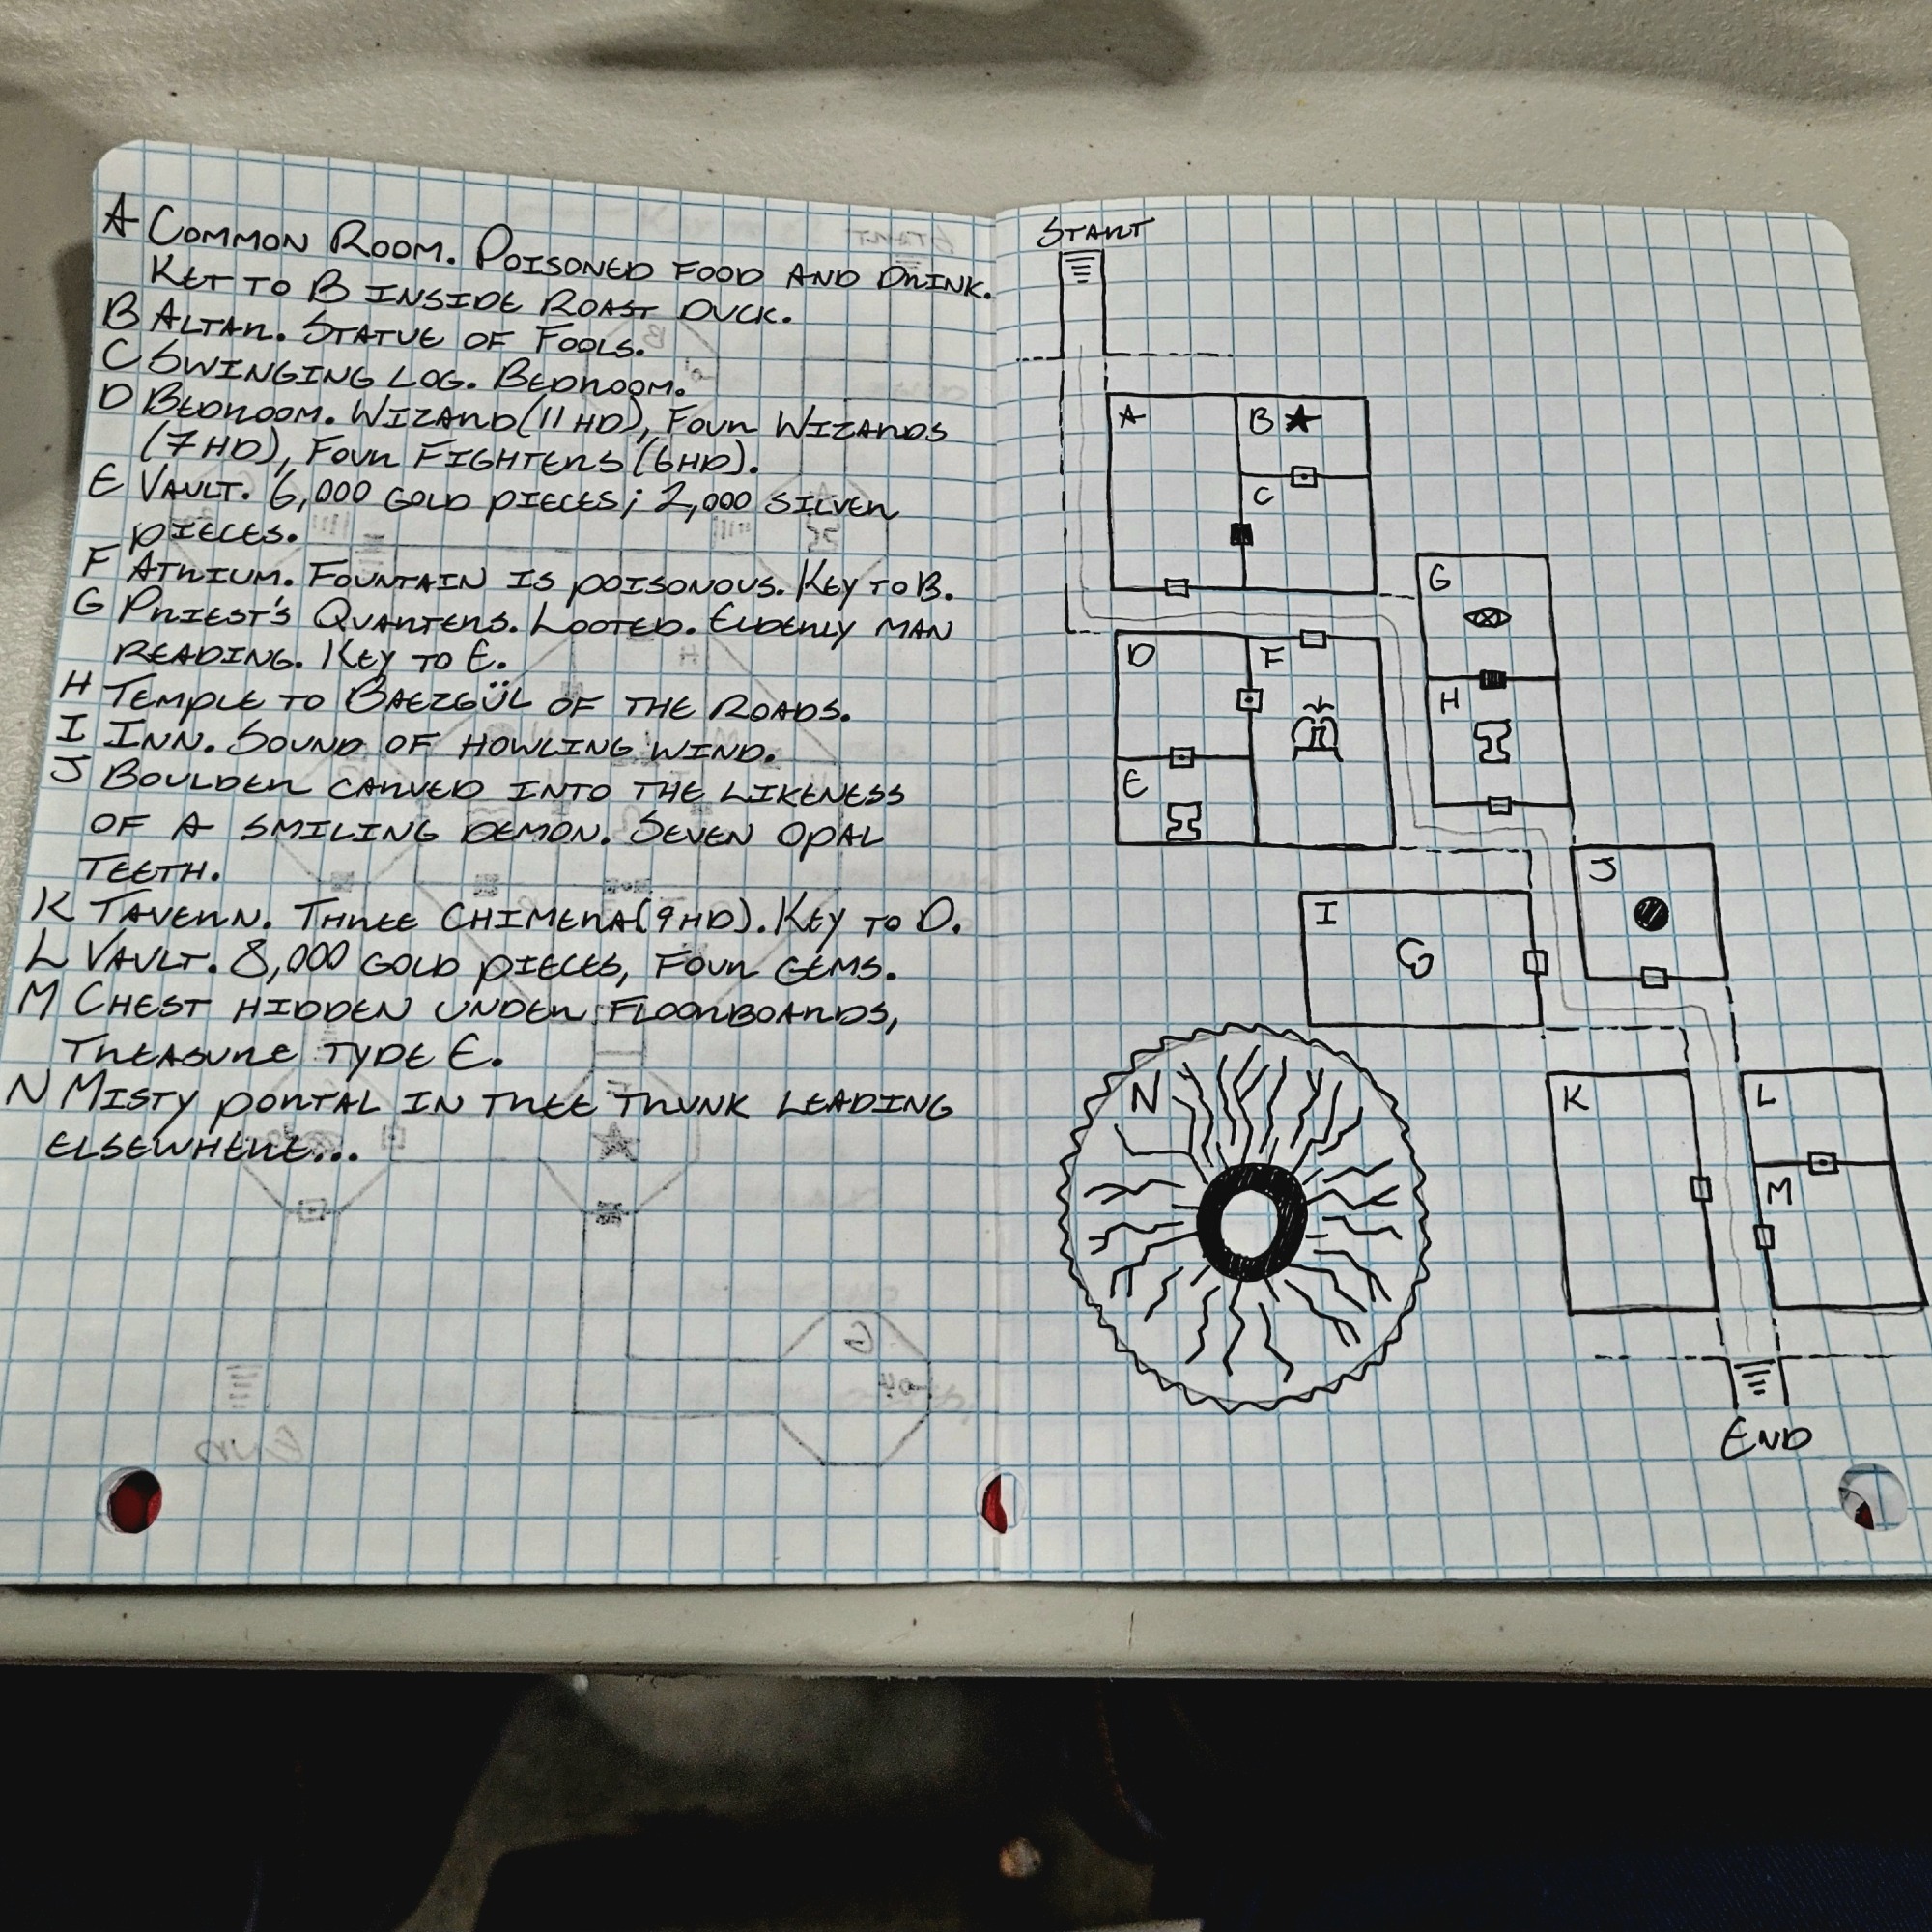 A COMMON ROOM. POISONED FOOD AND DRINK.
KEY TO B INSIDE ROAST DUCK.
B ALTAR. STATUE OF FOOLS.
C SWINGING LOG. BEDROOM.
D BEDROOM. WIZARD (11 HD), FOUR WIZARDS
(7 HD), FOUR FIGHTERS (6HD).
E VAULT. 6,000 GOLD PIECES; 2,000 SILVER
PIECES.
F ATRIUM. FOUNTAIN IS POISONOUS. KEY TO B.
G PRIEST'S QUARTERS. LOOTED. ELDERLY MAN
READING. KEY TO E.
H TEMPLE TO BAEZGÜL OF THE ROADS.
I INN. SOUND OF HOWLING WIND.
J BOULDER CARVED INTO THE LIKENESS
OF A SMILING DEMON. SEVEN OPAL
TEETH.
K TAVERN. THREE CHIMERA (9HD). KEY TO D.
L VAULT. 8,000 GOLD PIECES, FOUR GEMS.
M CHEST HIDDEN UNDER FLOORBOARDS,
TREASURE TYPE E.
N MISTY PORTAL IN TREE TRUNK LEADING
ELSEWHERE...
START
A
B
C
G
D
F
H
E
J
I
N
K
L
M
END